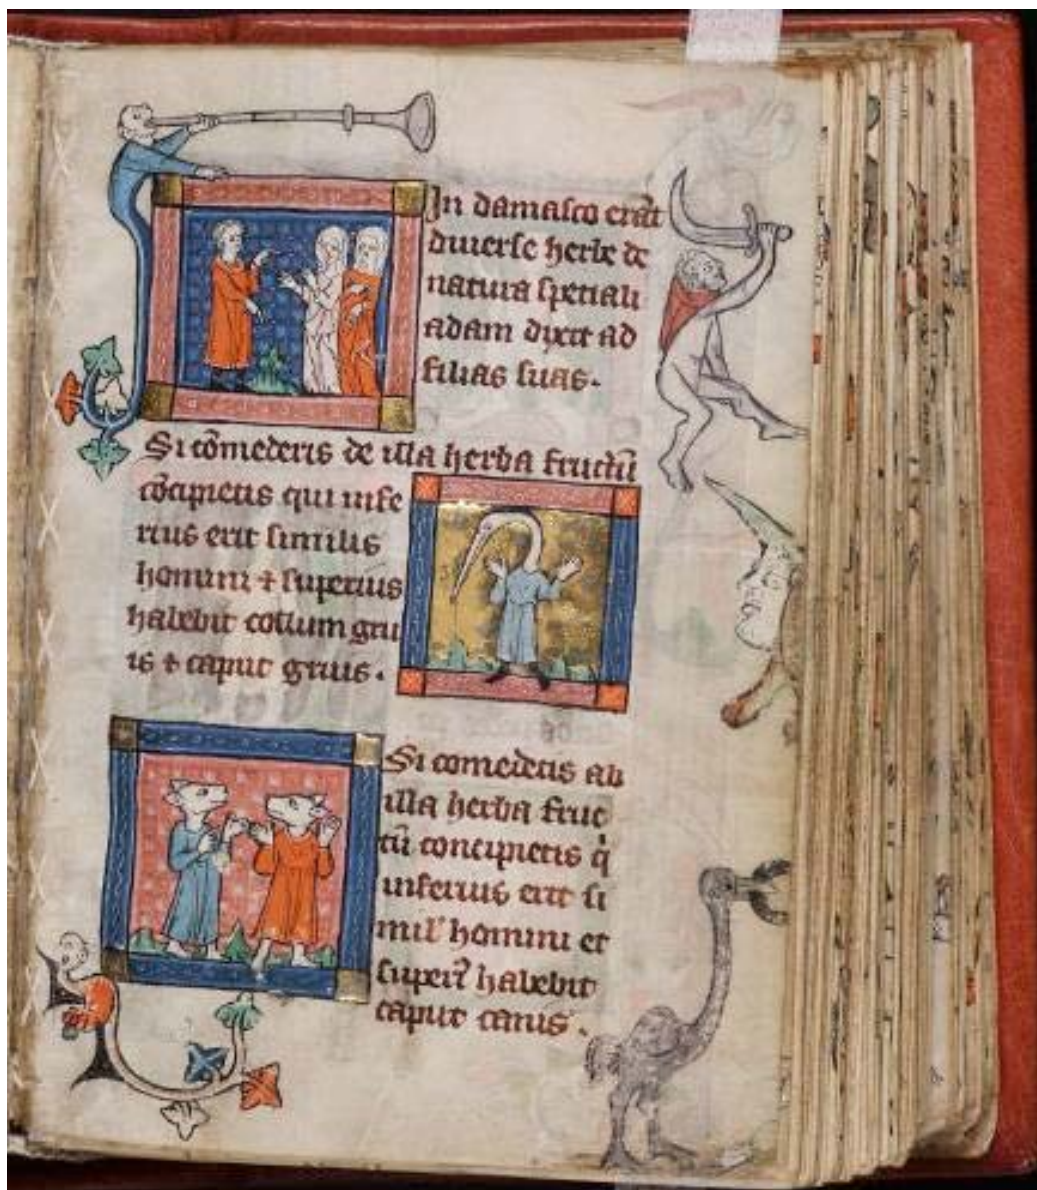 In damasco erāt
diuerse herbe de
natura speciali
adam dixit ad
filias suas.
Si cōmederis de illa herba fructū
cōcipietis qui infe
rius erit similis
homini ⁊ superius
habebit collum gru
is ⁊ caput gruis.
Si comedetis ab
illa herba fruc
tū concipietis q̇
inferius erit si
mil' homini et
superi᷒ habebit
caput canis.